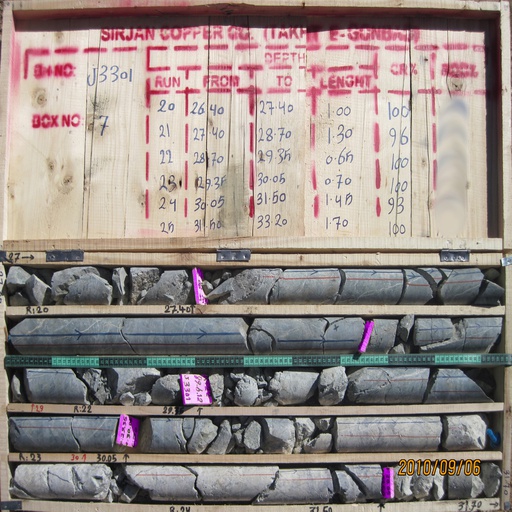 SIRJAN COPPER CO. (TAKHT E-GONBAD)
DEPTH
B.H NO: J3301 RUN FROM TO LENGHT CR%
BOX NO 7
20 26.40 27.40 1.00 100
21 27.40 28.70 1.30 96
22 28.70 29.35 0.65 100
23 29.35 30.05 0.70 100
24 30.05 31.50 1.45 93
25 31.50 33.20 1.70 100
R:20 27.40
R:22
R:23 30.05
R:24 31.50
2010/09/06